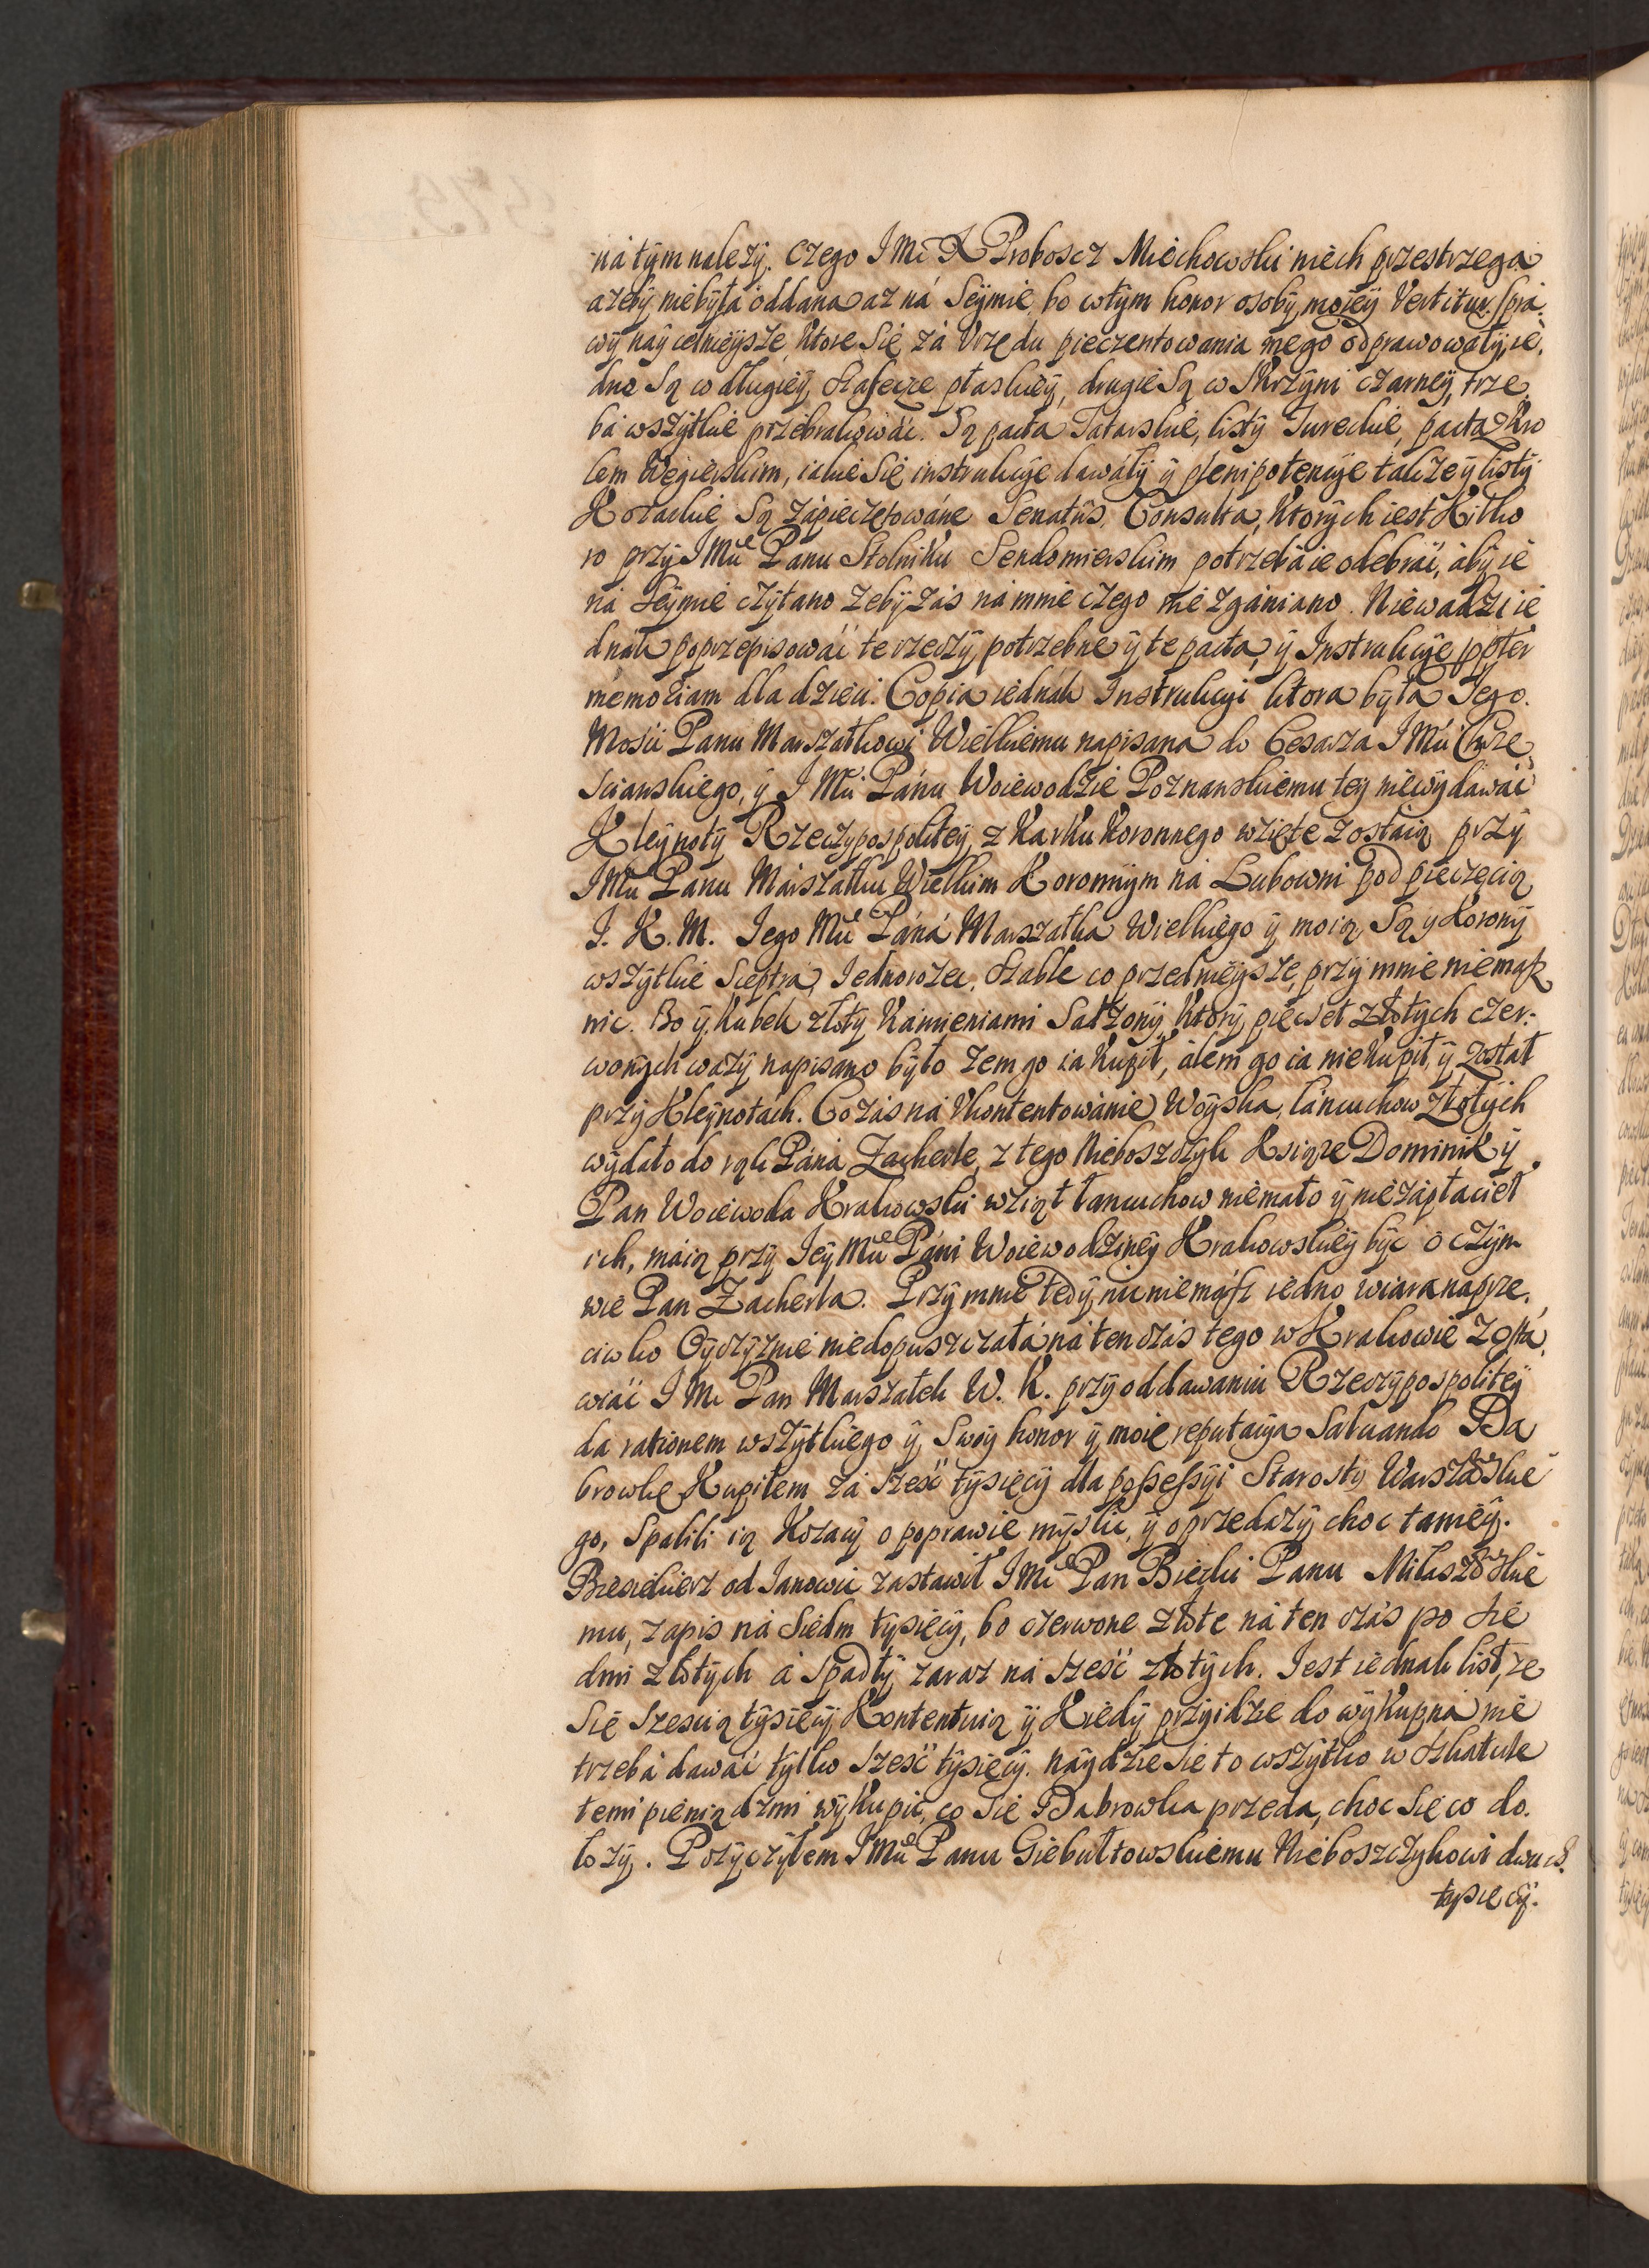 ná tym należy. czego I Mć X Proboscz Miechowski niech przestrzega
azeby niebyłá oddana aż ná Seymie, bo wtym honor osoby moiey Vertitur. Sprá
wy nay celnieysze, ktore się zá Vrzędu pieczentowania mego odprawowały, ie
dne Są w długiey szafecze płaskiey, drugie Są w Skrzyni czarney, trze
bá wszytkie przebrakowáć. Są pacta Tatarskie, listy Tureckie, pacta z Kro
lem Węgierskim, iakie Się instrukcye dawáły y plenipotencye także y listy
Kozackie Są zápieczętowáne Senatûs Consulta, ktorych iest Kilko
ro przy I Mći Panu Stolniku Sendomierskim potrzebá ie odebráć, áby ie
ná Seymie czytano zeby zás ná mnie czego nie zgániano. Niewadzi ie
dnák poprzepisowáć te rzeczy potrzebne y te pacta, y Instrukcye ppter
memoriam dla dzieci. Copia iednák Instrukcyi ktora była Iego
Mości Panu Marszałkowi Wielkiemu napisana do Cesarza I Mći Chrze
sciańskiego, y I Mći Pánu Woiewodzie Poznanskiemu tey niewydawáć
Kleynoty Rzeczypospolitey z Karku Koronnego wzięte zostaią przy
I Mći Panu Marszałku Wielkim Koronnym ná Lubowni pod pieczęcią
I. K. M. Iego Mći Páná Marszałka Wielkiego y moią, Są y Korony
wszytkie Sceptra, Iednorożec, Szable co przednieysze, przy mnie niemasz
nic. Bo y kubek złoty kámieniami Sadzony, ktory piećset złotych czer:
wonych waży napisano było żem go ia kupił, álem go ia nie kupił, y został
przy Kleynotách. Co zás ná Vkontentowánie Woyska, łáncuchow złotych
wydáło do rąk Páná Zacherle, z tego Nieboszczyk Ksiąze Dominik y
Pan Woiewoda Krakowski wziął łancuchow niemáło y niezápłaciel
ich, máią przy Iey Mći Páni Woiewodziney Krakowskiey być o czym
wie Pan Zacherla. Przy mnie tedy nic niemász iedno wiara naprze
ciwko Oyczyznie niedopuszczałá ná ten czás tego w Krakowie zostá
wiáć I Mć Pan Marszałek W. K. przy oddawaniu Rzeczypospolitey
da rationem wszytkiego y Swoy honor y moię reputacyą Saluando Da
browkę Kupiłem zá sześć tysięcy dla possessyi Starosty Warszawskie
go, Spalili ią Kozacy o poprawie myślić, y o przedaży choc tániey.
Biesiekierz od Ianowic zastawił I Mć Pan Biecki Panu Miłaszowskie
mu, zapis ná Siedm tysięcy, bo czerwone złote ná ten czás po sie
dmi złotych á spadły zaraz ná sześć złotych. Iest iednák list, że
Się sześcią tysięcy Kontentuią y Kiedy przyidzie do wykupná nie
trzebá dawáć tylko sześć tysięcy. náydzie się to wszytko w szkatule
temi pieniądzmi wykupić, co się Dabrowka przeda, choc się co do
łoży. Pożyczyłem I Mći Panu Giebułtowskiemu Nieboszczykowi dwuch
tysięcy.